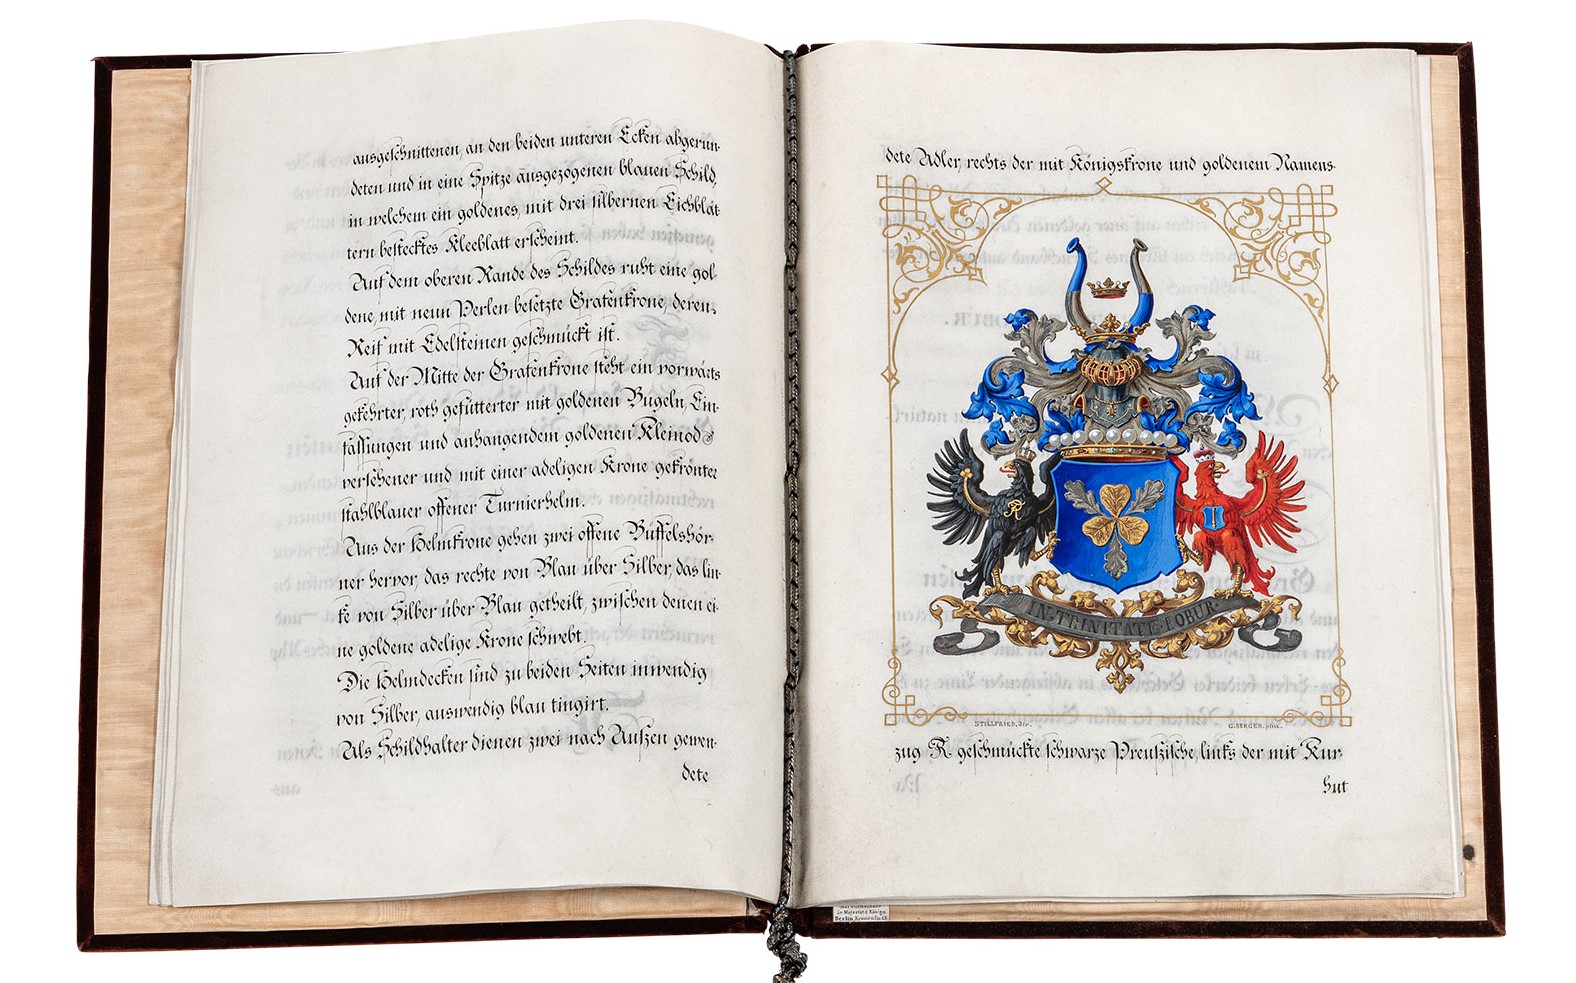 ausgeschnittenen, an den beiden unteren Ecken abgerun-
deten und in eine Spitze ausgezogenen blauen Schild,
in welchem ein goldenes, mit drei silbernen Eichblät
tern bestecktes Kleeblatt erscheint.
Auf dem oberen Rande des Schildes ruht eine gol-
dene, mit neun Perlen besetzte Grafenkrone, deren
Reif mit Edelsteinen geschmückt ist.
Auf der Mitte der Grafenkrone steht ein vorwärts
gekehrter, roth gefütterter mit goldenen Bügeln, Ein-
fassungen und anhangendem goldenen Kleinod
versehener und mit einer adeligen Krone gekrönter
stahlblauer offener Turnierhelm.
Aus der Helmkrone gehen zwei offene Büffelshör-
ner hervor, das rechte von Blau über Silber, das lin-
ke von Silber über Blau getheilt, zwischen denen ei-
ne goldene adelige Krone schwebt.
Die Helmdecken sind zu beiden Seiten inwendig
von Silber, auswendig blau tingirt.
Als Schildhalter dienen zwei nach Außen gewen-
dete
dete Adler, rechts der mit Königskrone und goldenem Namens-
IN TRINITATE ROBUR
STILLFRIED, dir.
C. BERGER, pinx.
zug R geschmückte schwarze Preußische, links der mit Kur-
hut
Sr Majestät d Königs
Berlin